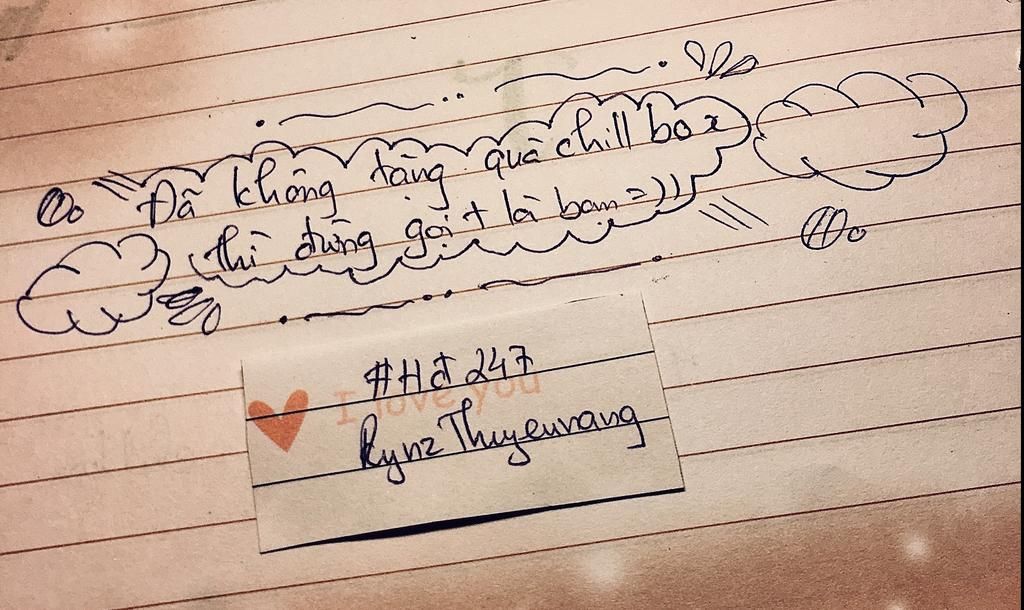 Đã không tặng quà chill box
thì đừng gọi t là bạn =))
#Hđ 247
I love you
Rynz Thuyeurang